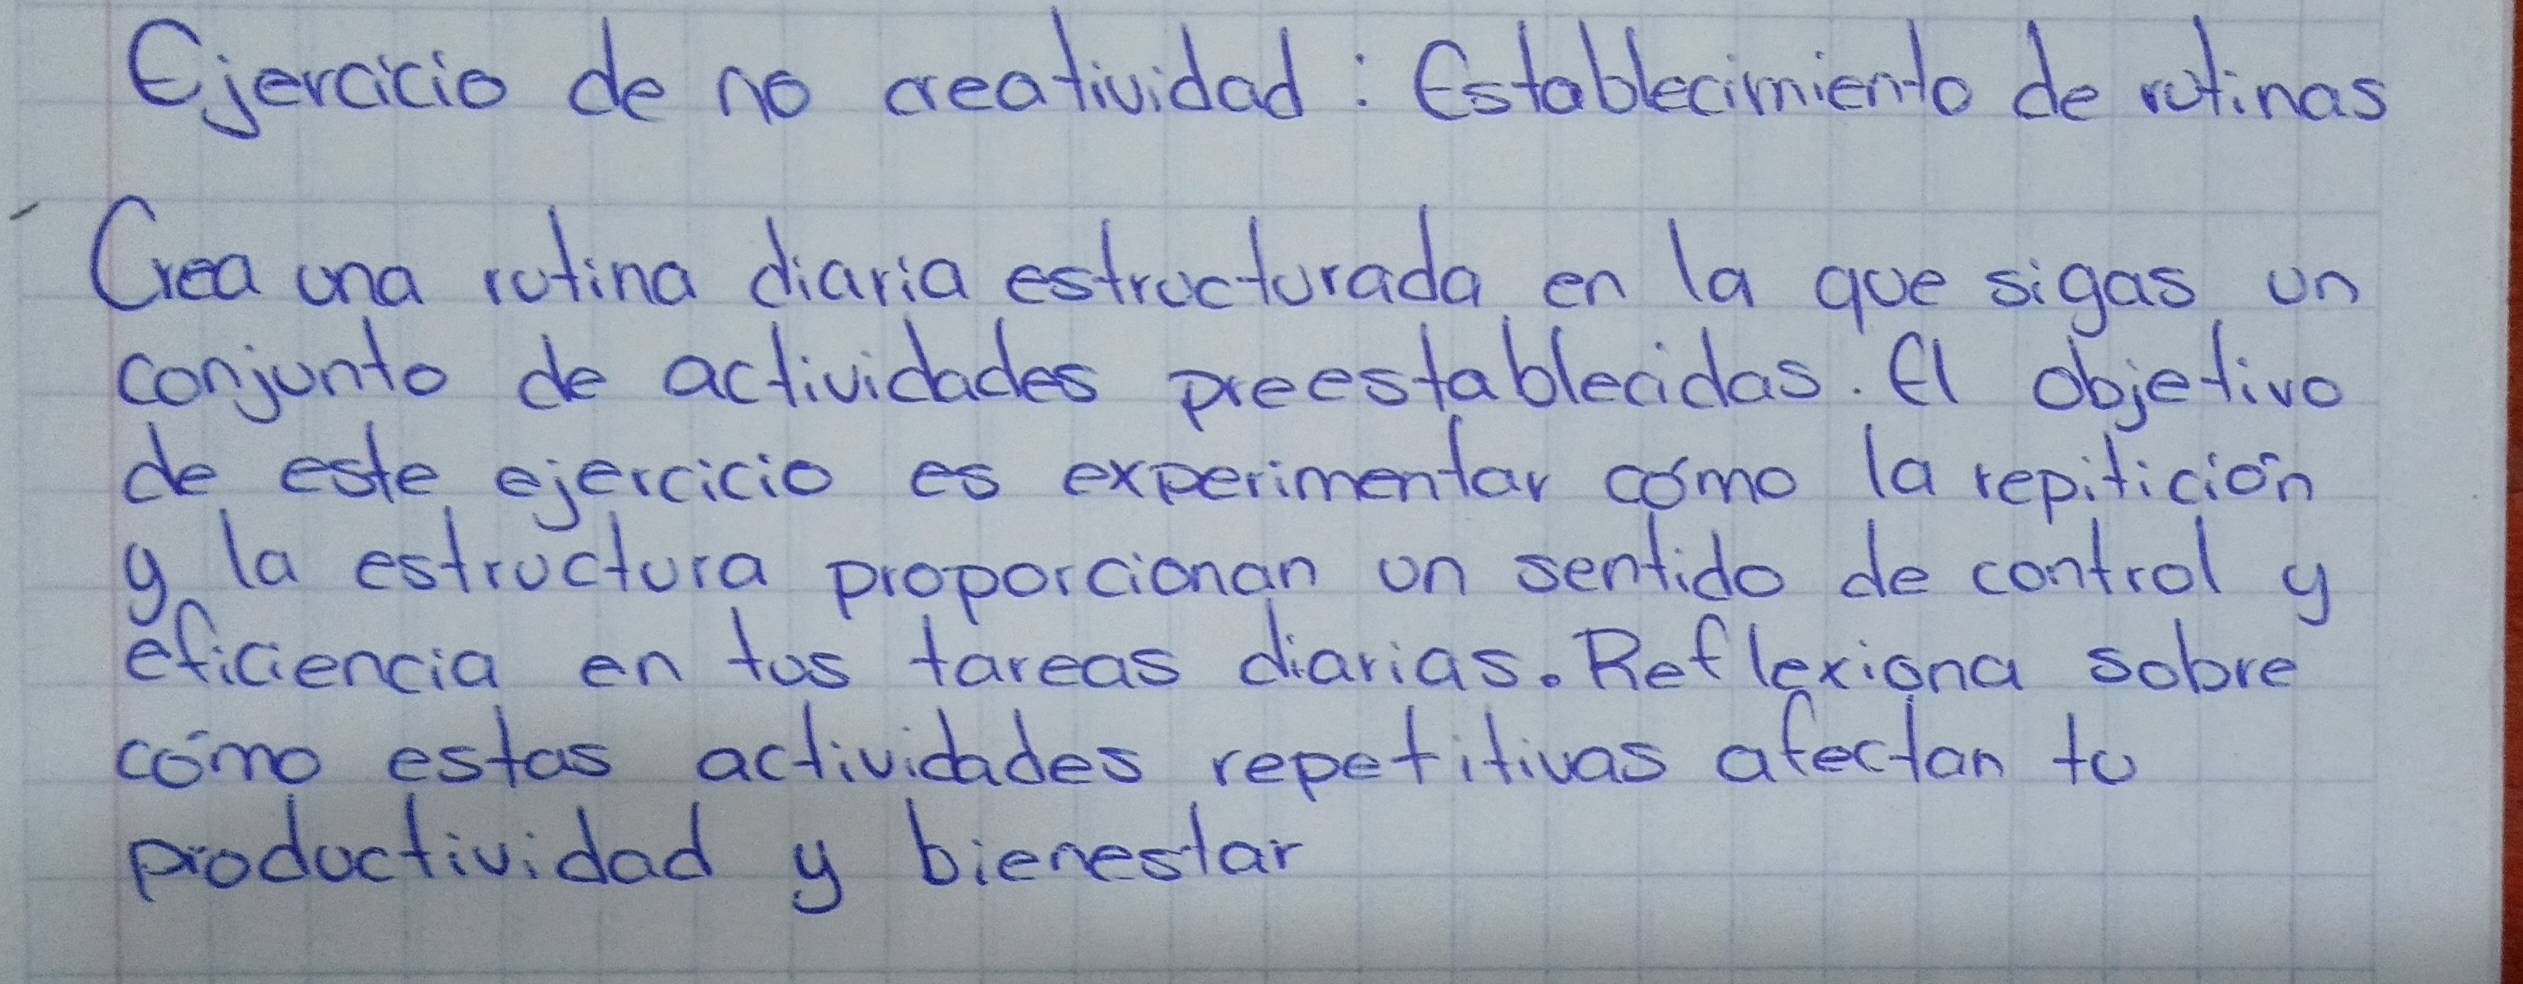 Ejercicio de no creatividad: Establecimiento de rutinas
Crea una rutina diaria estructurada en la que sigas un
conjunto de actividades preestablecidas. El objetivo
de este ejercicio es experimentar cómo la repitición
y la estructura proporcionan un sentido de control y
eficiencia en tus tareas diarias. Reflexiona sobre
cómo estas actividades repetitivas afectan tu
productividad y bienestar